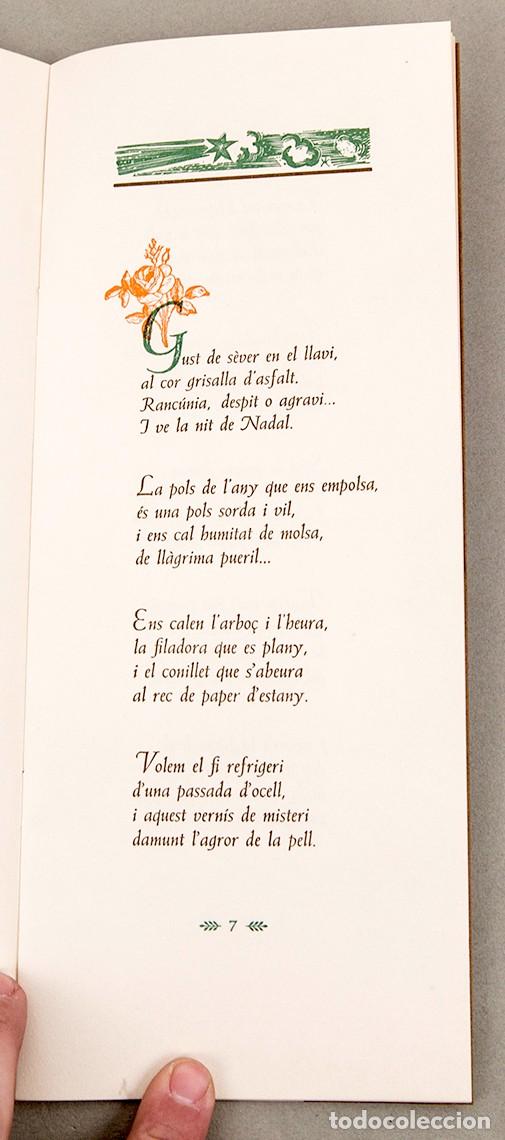 Gust de sèver en el llavi,
al cor grisalla d'asfalt.
Rancúnia, despit o agravi...
I ve la nit de Nadal.
La pols de l'any que ens empolsa,
és una pols sorda i vil,
i ens cal humitat de molsa,
de llàgrima pueril...
Ens calen l'arboç i l'heura,
la filadora que es plany,
i el conillet que s'abeura
al rec de paper d'estany.
Volem el fi refrigeri
d'una passada d'ocell,
i aquest vernís de misteri
damunt l'agror de la pell.
7
todocoleccion